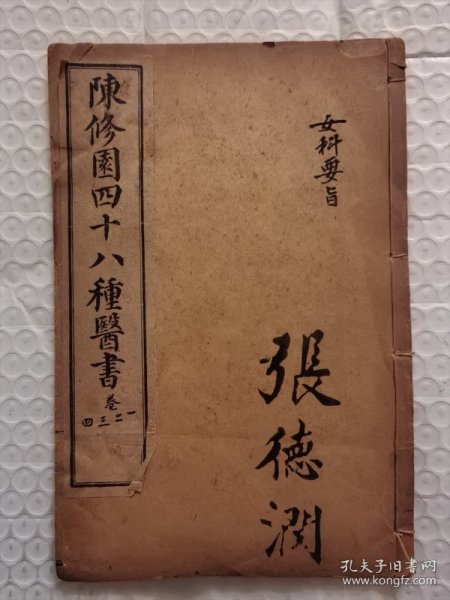 女科要旨
張德潤
陳修園四十八種醫書
卷
一二三四
孔夫子旧书网
www.kongfz.com